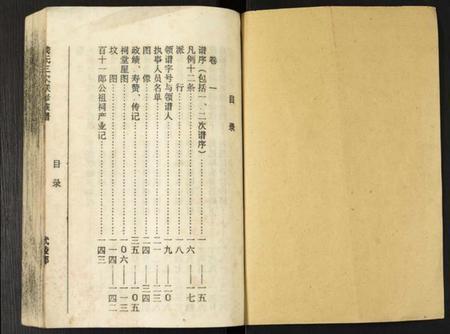 目录
卷一
谱序（包括一、二次谱序）……一——一五
凡例十二条……一六——一七
派行……一八
领谱字号与领谱人……一九——二〇
执事人员名单……二一——二三
图像……二四——三四
政绩、寿赞、传记……三五——一〇五
祠堂屋图……一〇六——一一三
坟图……一一四——一四二
百十一郎公祖祠产业记……一四三
目录
武陵郡